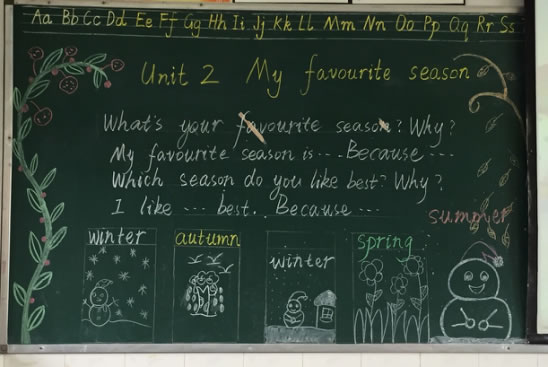 Aa Bb Cc Dd Ee Ff Gg Hh Ii Jj Kk Ll Mm Nn Oo Pp Qq Rr Ss
Unit 2 My favourite season
What's your favourite season? Why?
My favourite season is ··· . Because ···
Which season do you like best? Why?
I like ··· best. Because ···
summer
winter
autumn
winter
spring